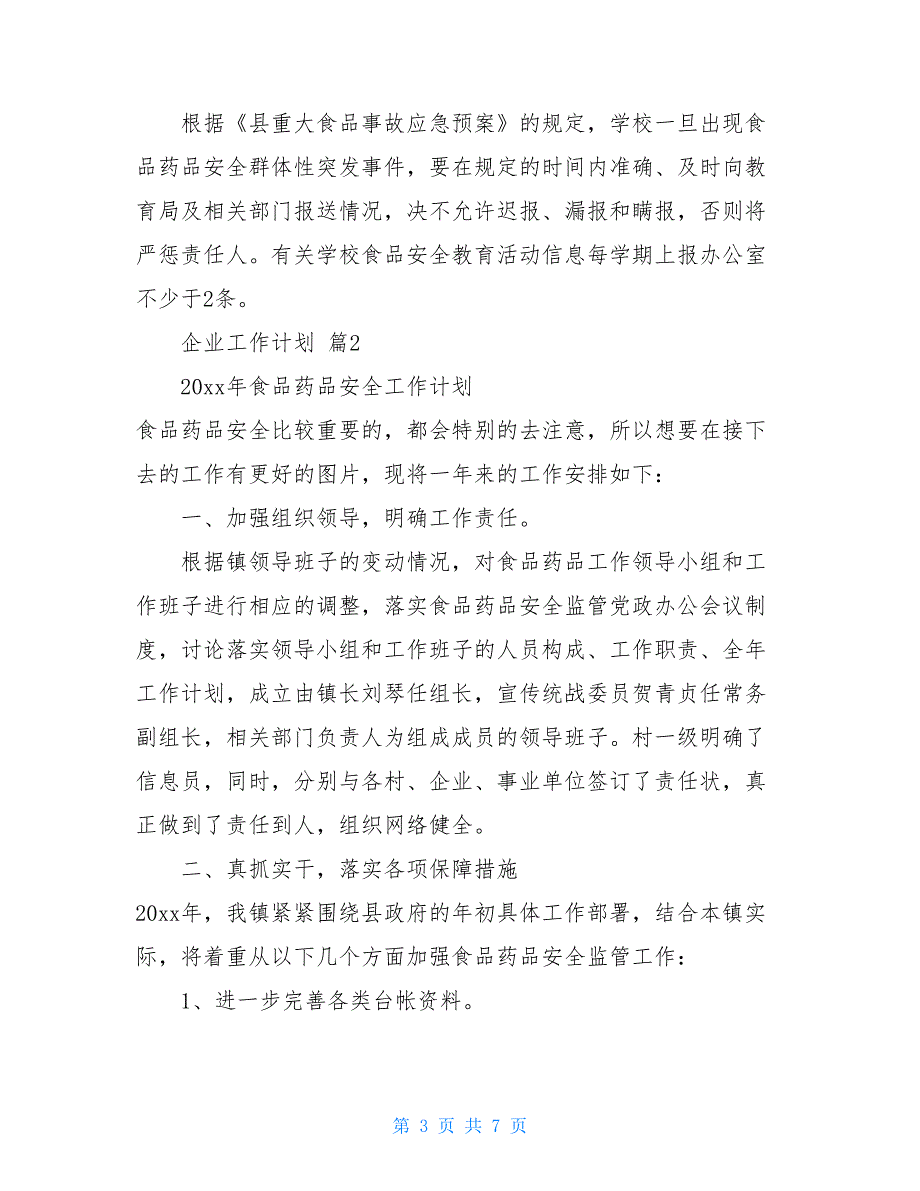 根据《县重大食品事故应急预案》的规定，学校一旦出现食
品药品安全群体性突发事件，要在规定的时间内准确、及时向教
育局及相关部门报送情况，决不允许迟报、漏报和瞒报，否则将
严惩责任人。有关学校食品安全教育活动信息每学期上报办公室
不少于2条。
企业工作计划 篇2
20xx年食品药品安全工作计划
食品药品安全比较重要的，都会特别的去注意，所以想要在接下
去的工作有更好的图片，现将一年来的工作安排如下：
一、加强组织领导，明确工作责任。
根据镇领导班子的变动情况，对食品药品工作领导小组和工
作班子进行相应的调整，落实食品药品安全监管党政办公会议制
度，讨论落实领导小组和工作班子的人员构成、工作职责、全年
工作计划，成立由镇长刘琴任组长，宣传统战委员贺青贞任常务
副组长，相关部门负责人为组成成员的领导班子。村一级明确了
信息员，同时，分别与各村、企业、事业单位签订了责任状，真
正做到了责任到人，组织网络健全。
二、真抓实干，落实各项保障措施
20xx年，我镇紧紧围绕县政府的年初具体工作部署，结合本镇实
际，将着重从以下几个方面加强食品药品安全监管工作：
1、进一步完善各类台帐资料。
第 3 页 共 7 页